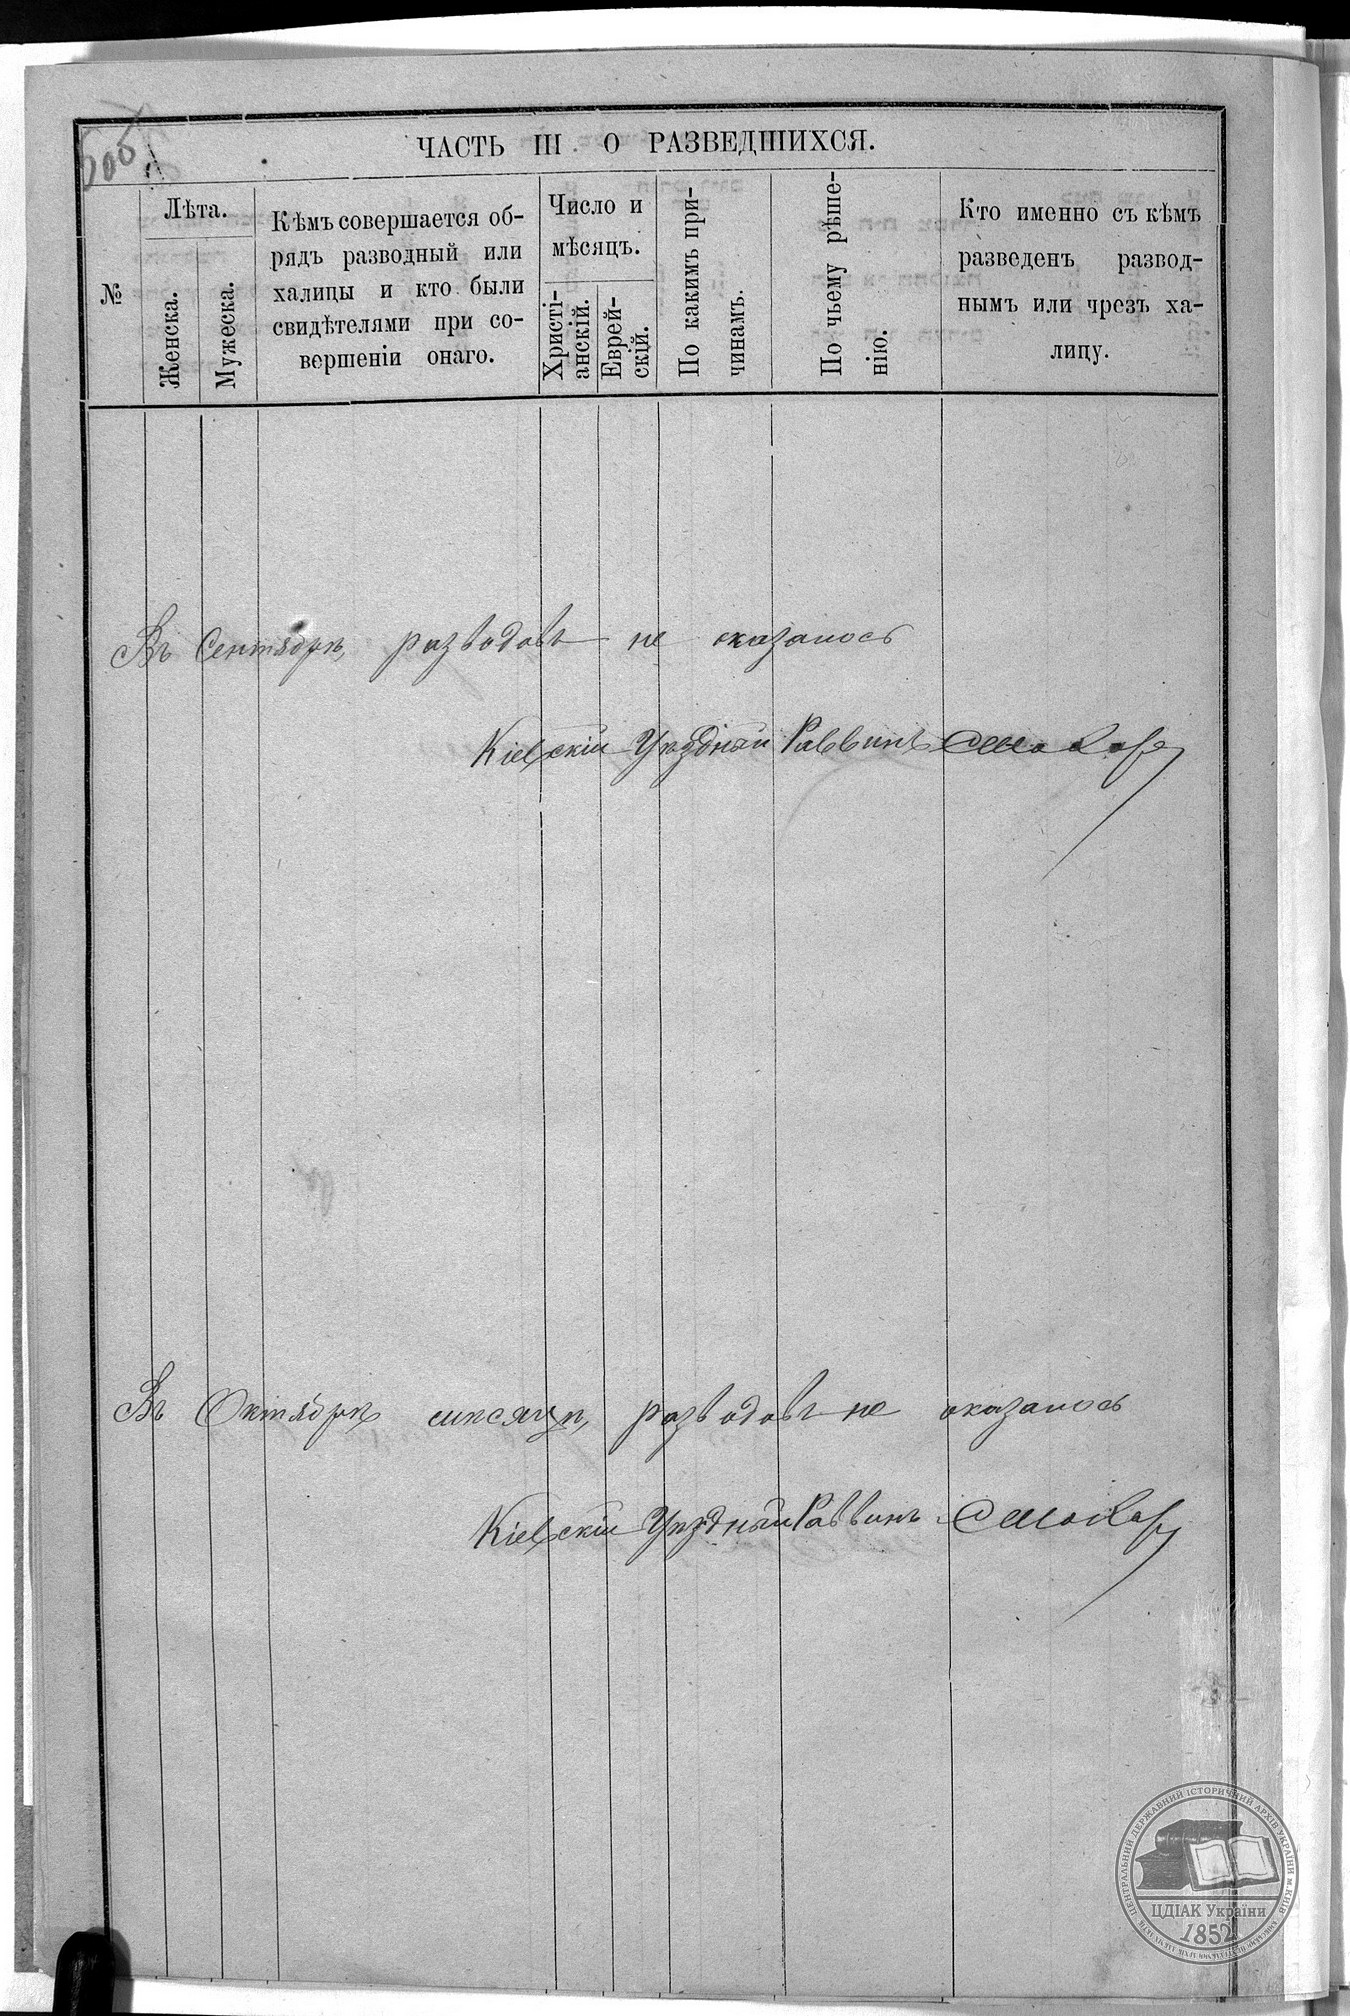 ЧАСТЬ III О РАЗВЕДШИХСЯ.
№
Лѣта.
Женска.
Мужеска.
Кѣмъ совершается об-
рядъ разводный или
халицы и кто были
свидѣтелями при со-
вершеніи онаго.
Число и
мѣсяцъ.
Христі-
анскій.
Еврей-
скій.
По какимъ при-
чинамъ.
По чьему рѣше-
нію.
Кто именно съ кѣмъ
разведенъ развод-
нымъ или чрезъ ха-
лицу.
Въ Сентябрѣ, разводовъ не оказалось
Кіевскій Уѣздный Раввинъ
Въ Октябрѣ мѣсяцѣ, разводовъ не оказалось
Кіевскій Уѣздный Раввинъ
ЦЕНТРАЛЬНИЙ ДЕРЖАВНИЙ ІСТОРИЧНИЙ АРХІВ УКРАЇНИ м. КИЇВ
ЦДІАК України
1852